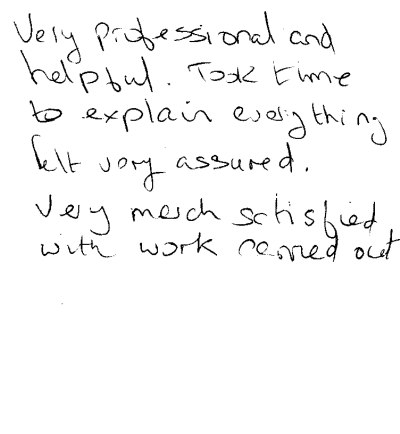 Very professional and
helpful. Took time
to explain everything
felt very assured.
Very much satisfied
with work carried out